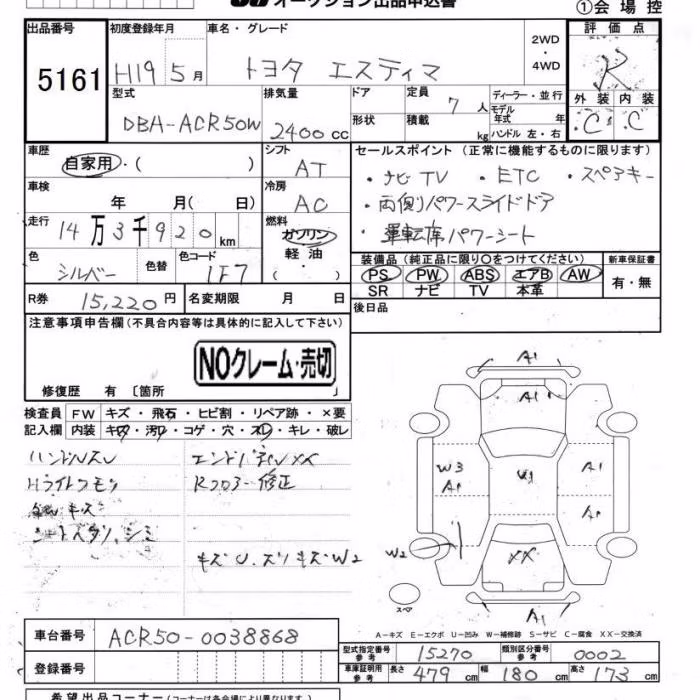 オークション出品申込書
①会場控
出品番号 初度登録年月 車名・グレード 2WD・4WD 評価点
5161 H19 5月 トヨタ エスティマ R
型式 排気量 ドア 定員 7人 ディーラー・並行
外装 内装
DBA-ACR50W 2400cc 形状 積載 kg モデル年式 年 ハンドル 左・右 C C
車歴 シフト セールスポイント (正常に機能するものに限ります)
自家用・( ) AT ・ナビTV ・ETC ・スペアキー
車検 年 月( 日) 冷房 AC ・両側パワースライドドア
走行 14万3千920km 燃料 ガソリン ・運転席パワーシート
色 シルバー 色替 色コード 1F7 軽油・( )
装備品 (純正品に限り○をつけてください) 新車保証書
PS PW ABS エアB AW 有・無
SR ナビ TV 本革
R券 15,220円 名変期限 月 日
後日品
注意事項申告欄 (不具合内容等は具体的に記入して下さい)
NOクレーム・売切
修復歴 有 〔箇所 〕
検査員 FW キズ・飛石・ヒビ割・リペア跡・×要
記入欄 内装 キズ・汚れ・コゲ・穴・スレ・キレ・破レ
ハンドルスレ
Hライトクモリ R 修正
キズ
シートスタリ、シミ
W2
A1
W3 A1 U1 A1
A1
W2 XX
スペア
A1
A-キズ E-エクボ U-凹み W-補修跡 S-サビ C-腐食 XX-交換済
車台番号 ACR50-0038868
型式指定番号 参考 15270 類別区分番号 参考 0002
登録番号
車庫証明用 参考 長さ 479cm 幅 180cm 高さ 173cm
希望出品コーナー (コーナーは各会場により異なります)